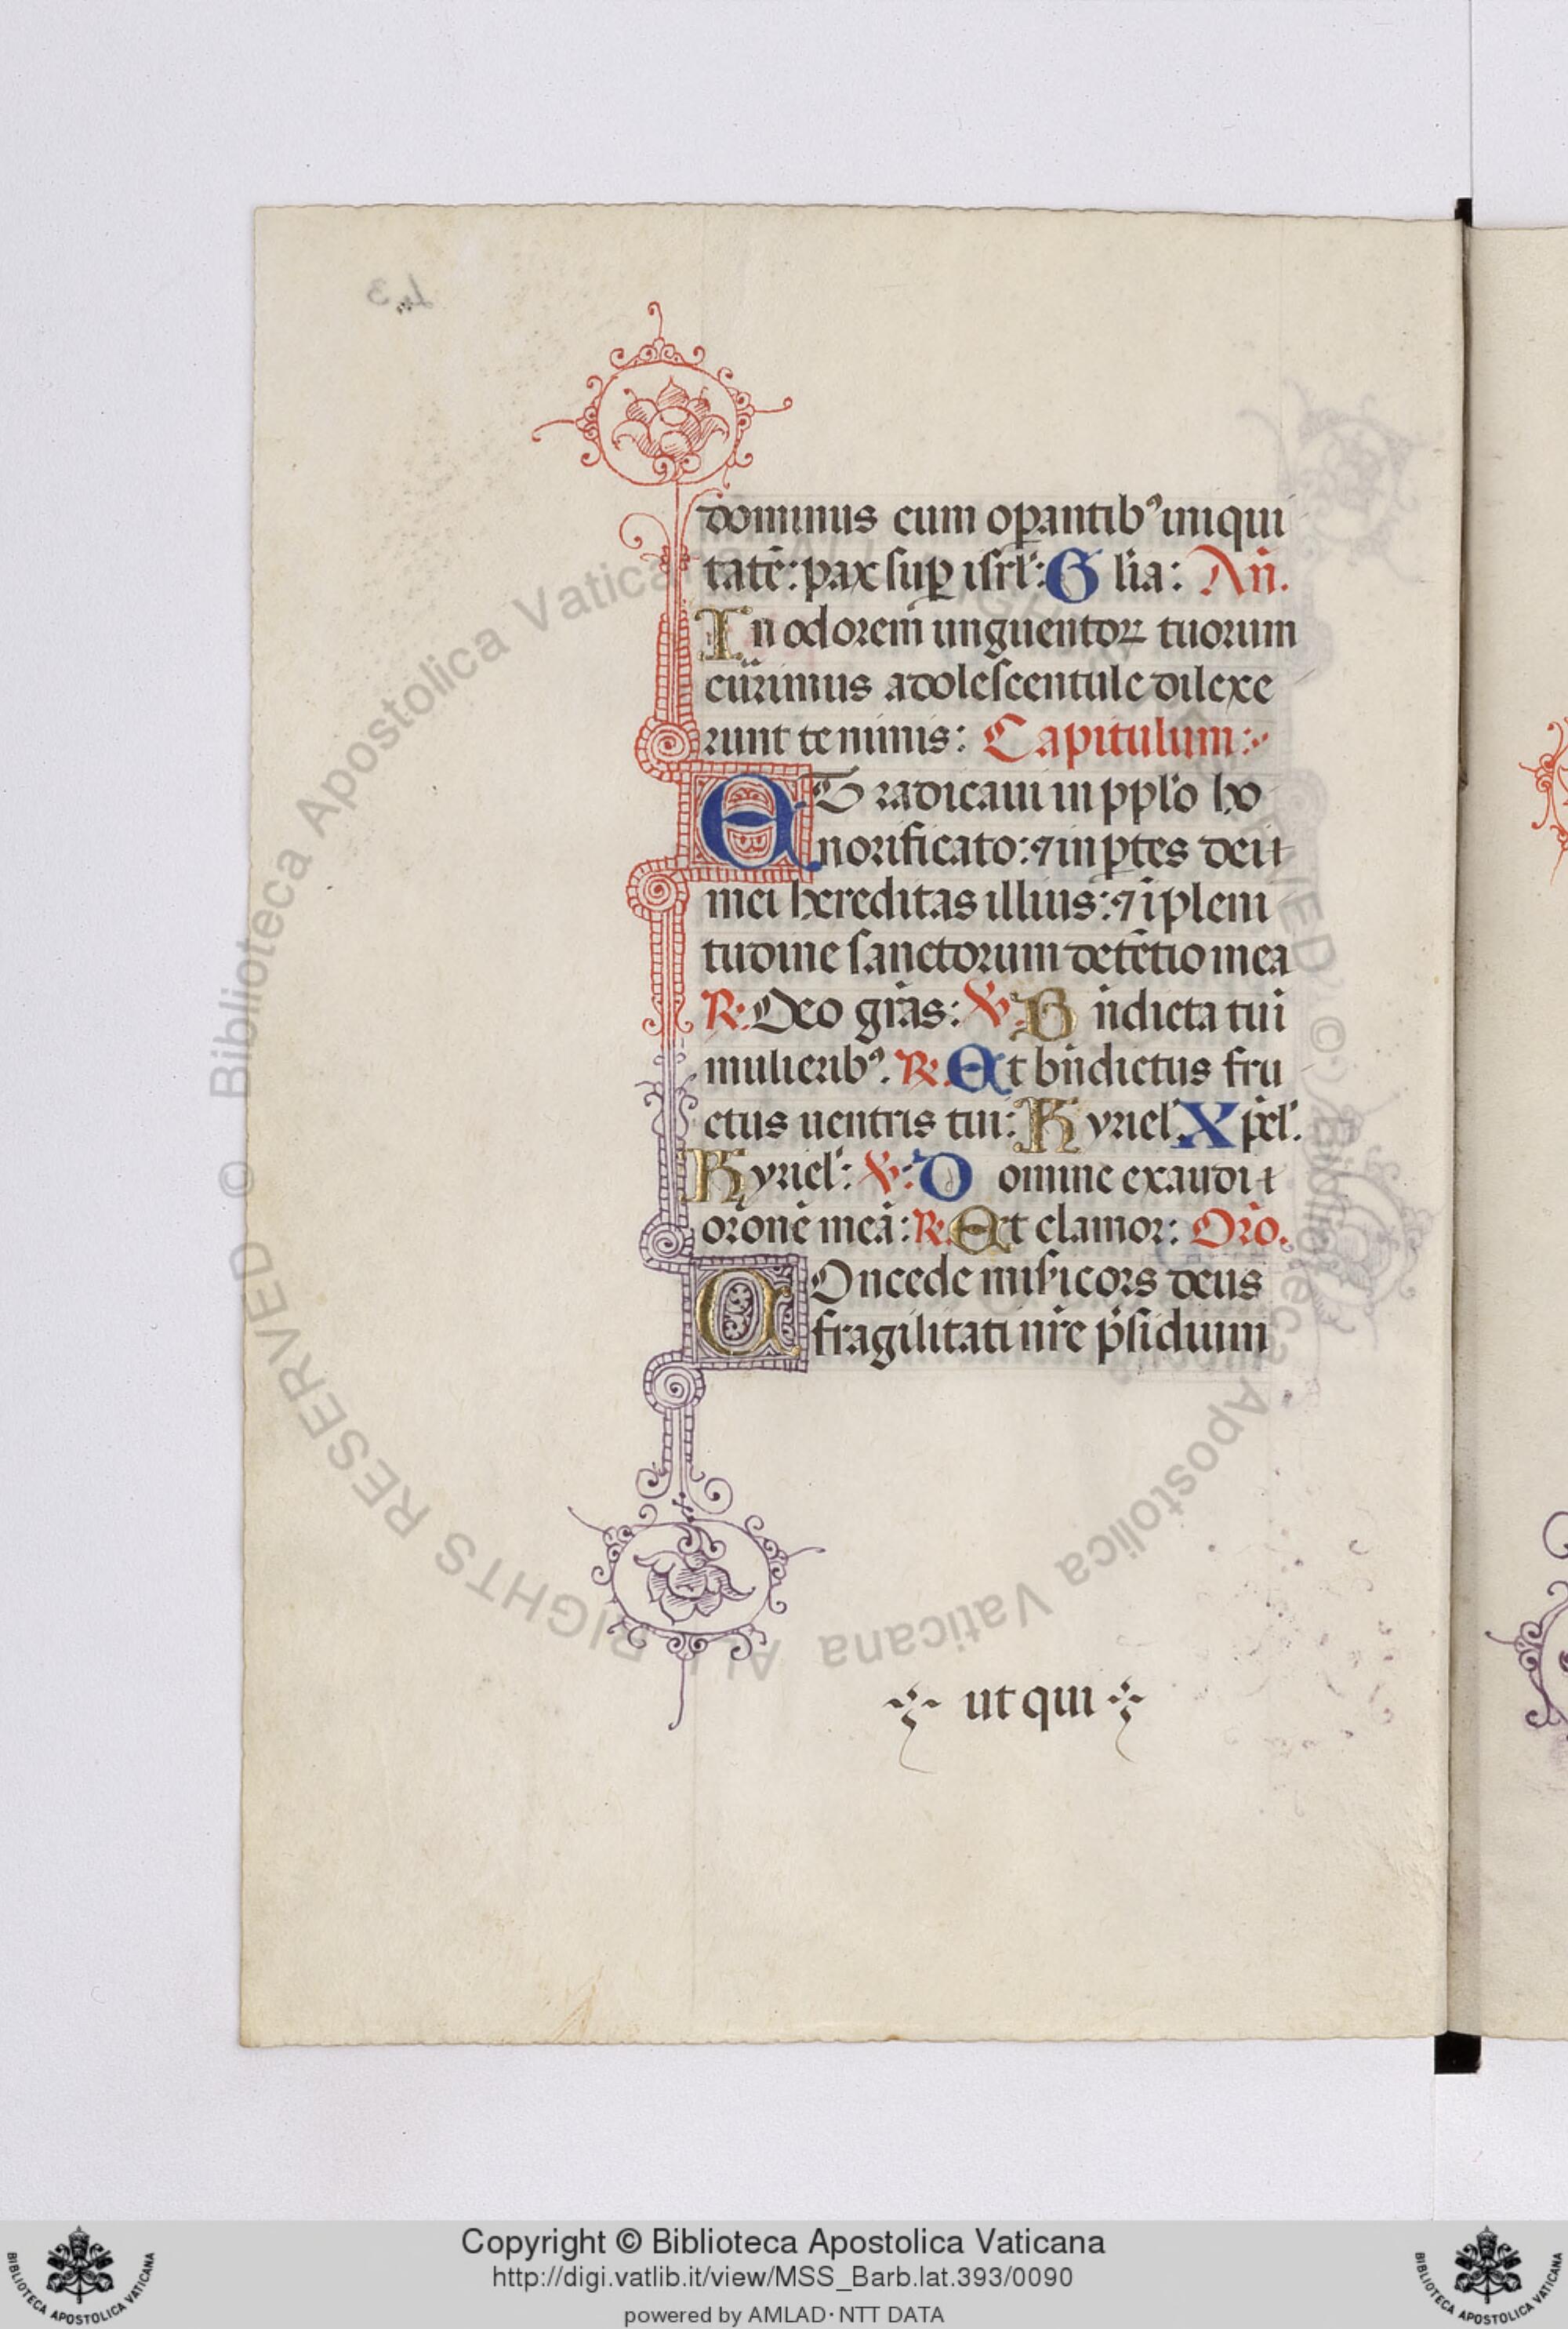 dominus cum oꝑantibꝰ iniqui
tatē: pax suꝑ isrl̓: Glia: An̄.
In odorem unguentoꝝ tuorum
currimus adolescentule dilexe
runt te nimis: Capitulum:
ET radicaui in ppl̓o ho
norificato: ⁊ in ꝑtes dei
mei hereditas illius: ⁊ ī pleni
tudine sanctorum detētio mea
℟. Deo grās: ℣. Bn̄dicta tu i
mulieribꝰ. ℟. Et bn̄dictus fru
ctus uentris tui: Kyriel̓. Xp̄el̓.
Kyriel̓: ℣: Domine exaudi
orōnē meā: ℟. Et clamor: Orō.
COncede mis̓icors deus
fragilitati nr̄e p̄sidium
ut qui
43
© Biblioteca Apostolica Vaticana ALL RIGHTS RESERVED © Biblioteca Apostolica Vaticana ALL RIGHTS RESERVED
Copyright © Biblioteca Apostolica Vaticana
http://digi.vatlib.it/view/MSS_Barb.lat.393/0090
powered by AMLAD·NTT DATA
BIBLIOTECA APOSTOLICA VATICANA
BIBLIOTECA APOSTOLICA VATICANA